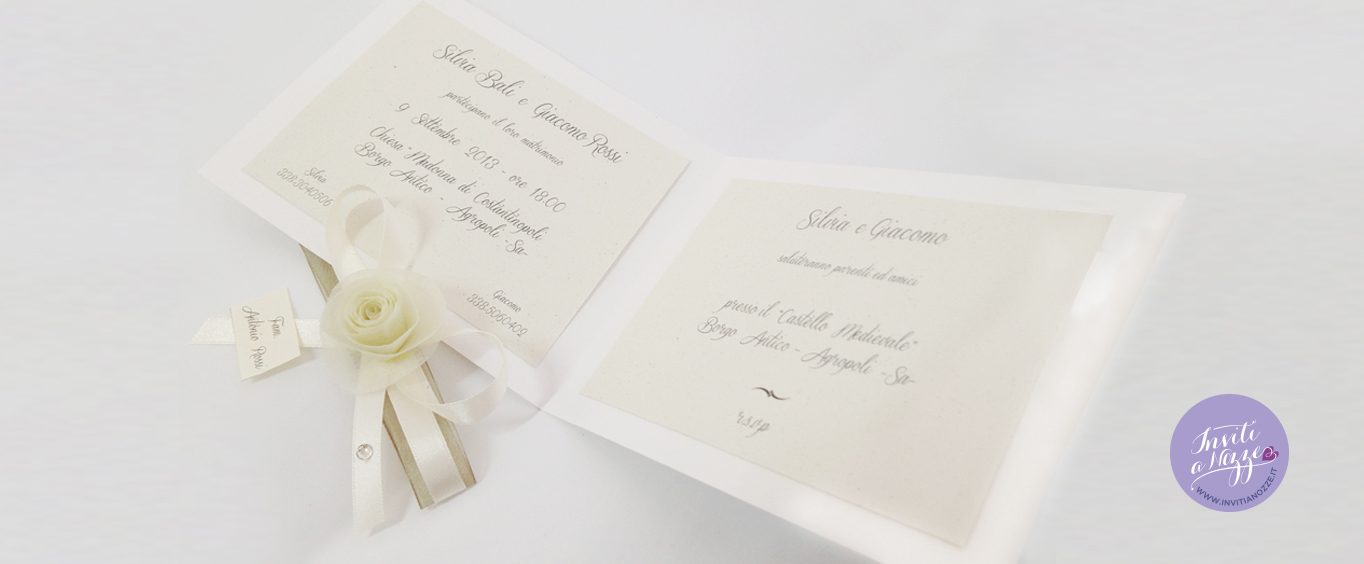 Silvia Bali e Giacomo Rossi
partecipano il loro matrimonio
9 Settembre 2013 - ore 18:00
Chiesa "Madonna di Costantinopoli"
Borgo Antico - Agropoli -Sa-
Silvia
338.5040506
Giacomo
338.5060402
Fam.
Antonio Rossi
Silvia e Giacomo
saluteranno parenti ed amici
presso il "Castello Medievale"
Borgo Antico - Agropoli -Sa-
r.s.v.p
Inviti
a Nozze
WWW.INVITIANOZZE.IT